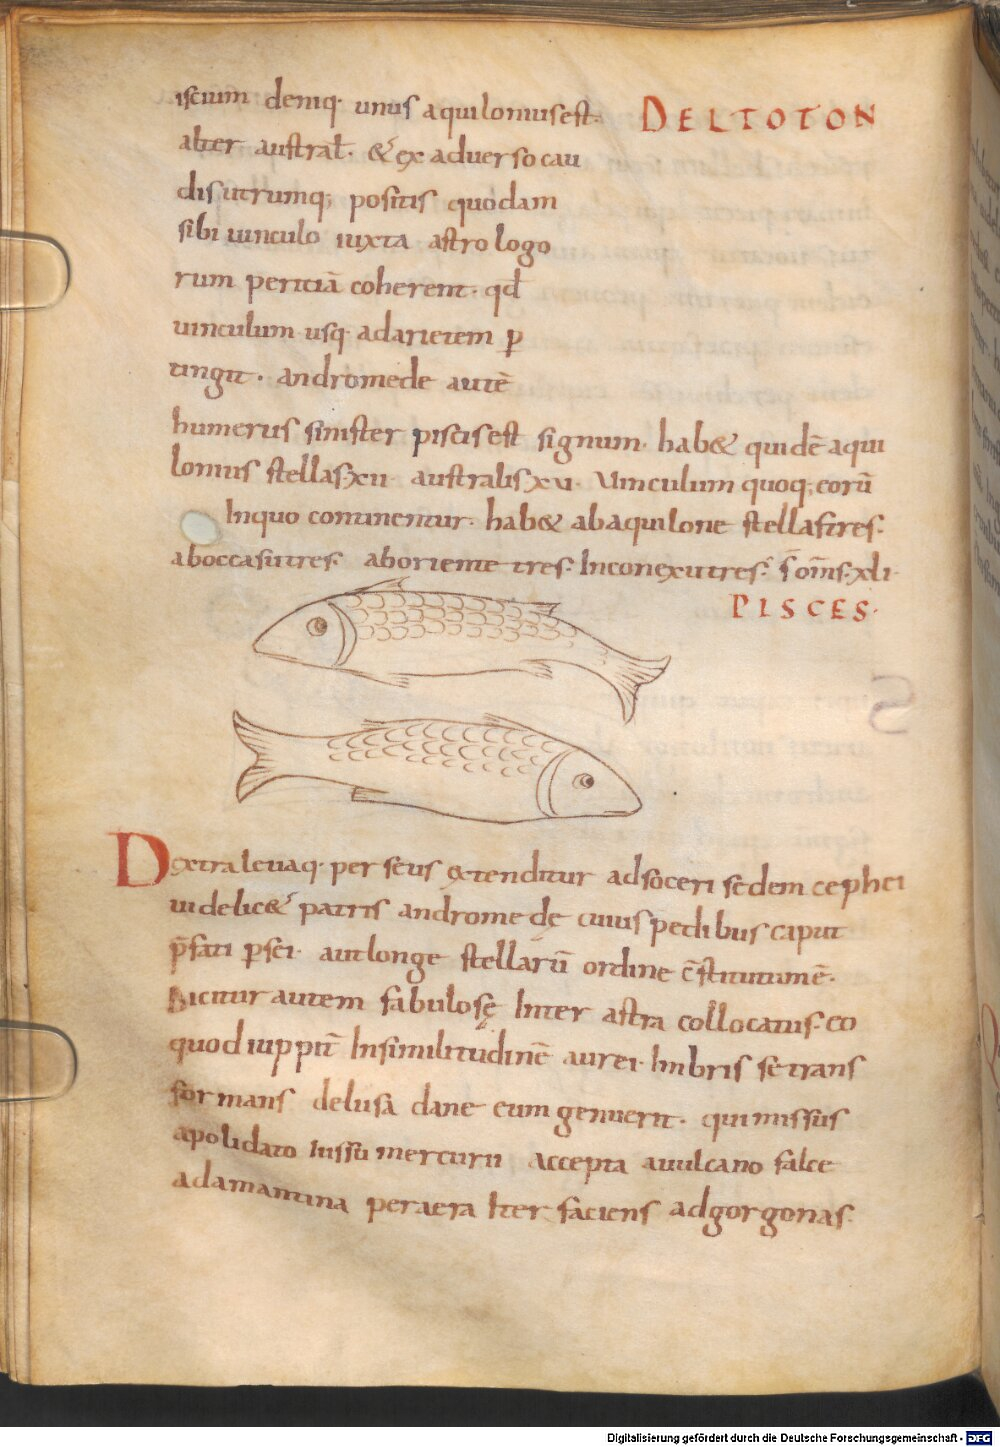 iscium deniq· unus aquilonius est·
DELTOTON
alter austral̄· & ex aduerso cau
dis utrumq; positis quodam
sibi uinculo iuxta astrologo
rum peritiā coherent· qđ
uinculum usq· ad arietem p̱
tingit· andromede autē
humerus sinister piscis est signum· hab& quidē aqui
lonius stellas·xii· australis xv· Vinculum quoq; eorū
Inquo continentur· hab& abaquilone stellas tres·
aboccasu tres· aboriente tres· Inconexu tres· s̄ om̄s·xli·
PISCES·
Dextra leuaq· perseus extenditur ad soceri sedem cephei
uidelic& patris andromedę cuius pedibus caput
p̄fati p̱sei· aut longe stellarū ordine c̄stitutum ē·
Dicitur autem fabulosę Inter astra collocatus· eo
quod iuppit̄ Insimilitudinē aurei· Imbris se trans
formans delusa dane eum genuerit· qui missus
apolidato iussu mercurii accepta auulcano falce
adamantina peraera Iter faciens adgorgonas·
Digitalisierung gefördert durch die Deutsche Forschungsgemeinschaft - DFG